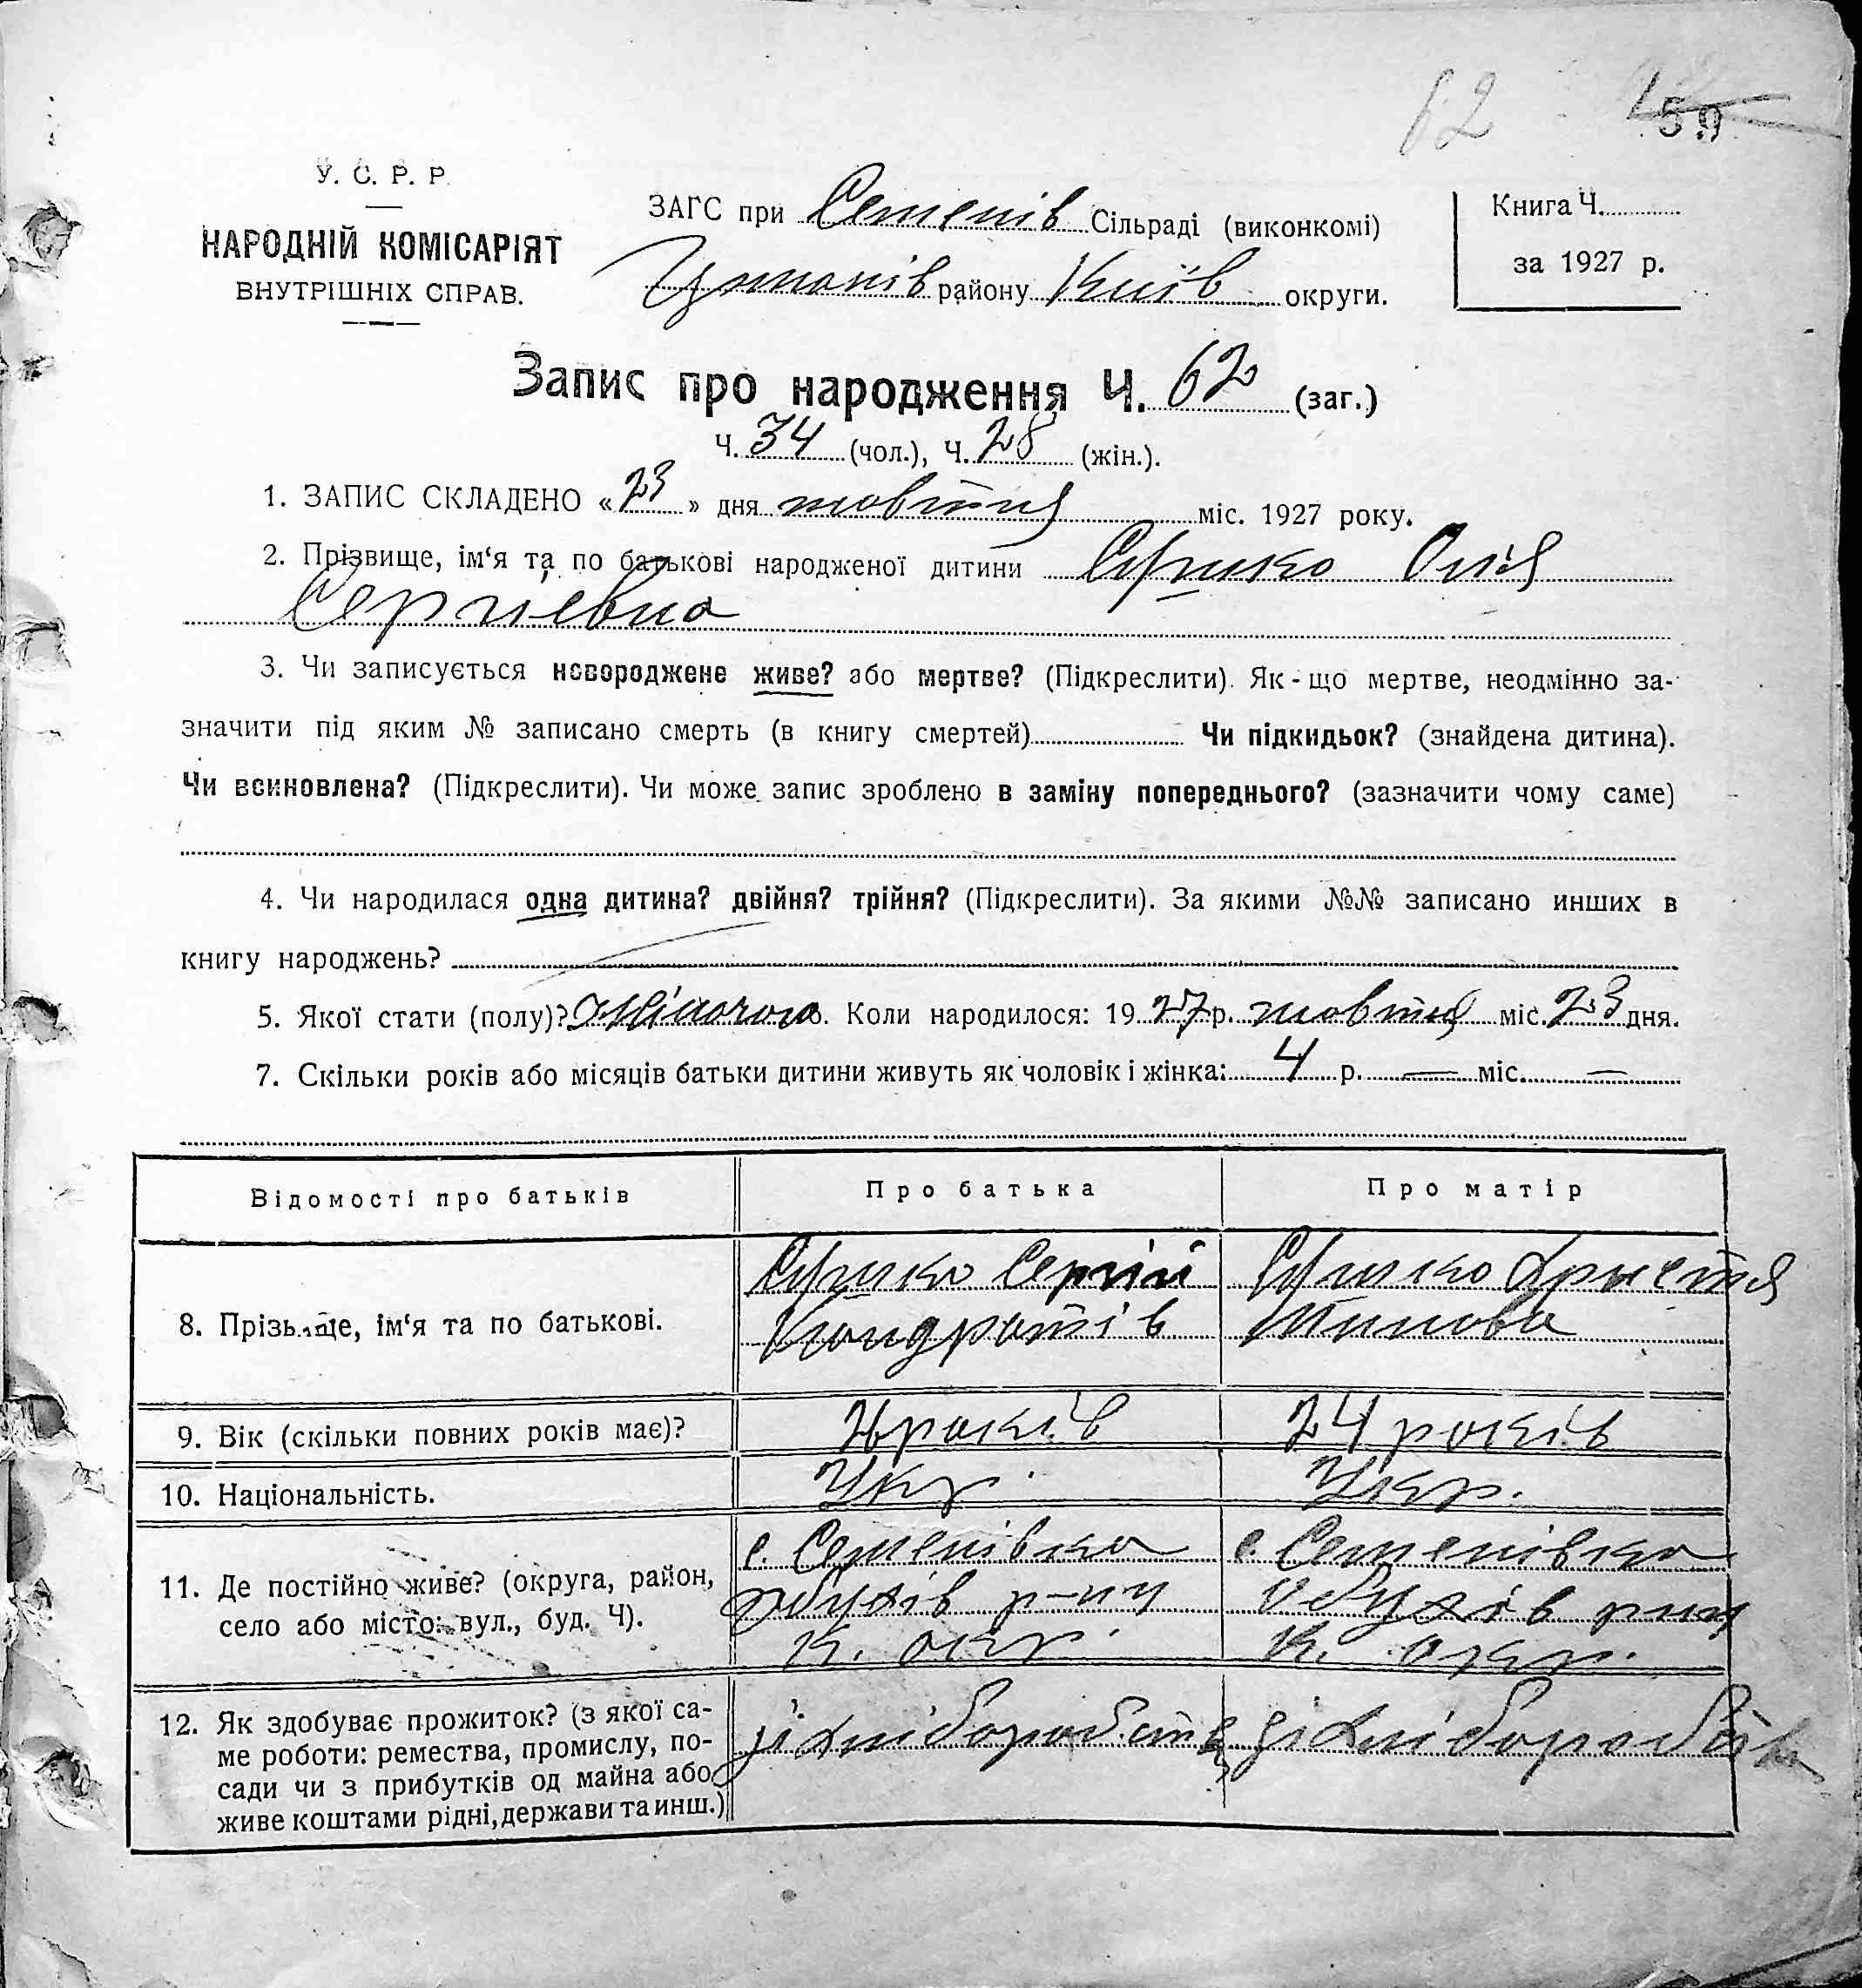 62 59
У. С. Р. Р.
НАРОДНІЙ КОМІСАРІЯТ
ВНУТРІШНІХ СПРАВ.
ЗАГС при Семенів Сільраді (виконкомі)
району Київ округи.
Книга Ч.
за 1927 р.
Запис про народження Ч. 62 (заг.)
Ч. 34 (чол.), Ч. 28 (жін.).
1. ЗАПИС СКЛАДЕНО «23» дня жовтня міс. 1927 року.
2. Прізвище, ім‘я та по батькові народженої дитини Сушко Олія
Сергиевна
3. Чи записується новороджене живе? або мертве? (Підкреслити). Як-що мертве, неодмінно за-
значити під яким № записано смерть (в книгу смертей) Чи підкидьок? (знайдена дитина).
Чи всиновлена? (Підкреслити). Чи може запис зроблено в заміну попереднього? (зазначити чому саме)
4. Чи народилася одна дитина? двійня? трійня? (Підкреслити). За якими №№ записано инших в
книгу народжень?
5. Якої стати (полу)? Жіночого 6. Коли народилося: 1927 р. жовтня міс. 23 дня.
7. Скільки років або місяців батьки дитини живуть як чоловік і жінка: 4 р. — міс. —
Відомості про батьків Про батька Про матір
8. Прізвище, ім‘я та по батькові.
Сушко Сергій
Кондратів
Сушко Христя
9. Вік (скільки повних років має)? років 24 років
10. Національність. Укр. Укр.
11. Де постійно живе? (округа, район,
село або місто: вул., буд. Ч).
с. Семенівка
Обухів р-ну
К. окр.
с. Семенівка
Обухів рну
К. окр.
12. Як здобуває прожиток? (з якої са-
ме роботи: ремества, промислу, по-
сади чи з прибутків од майна або
живе коштами рідні, держави та инш.)
зі хліборобства
зі хліборобств